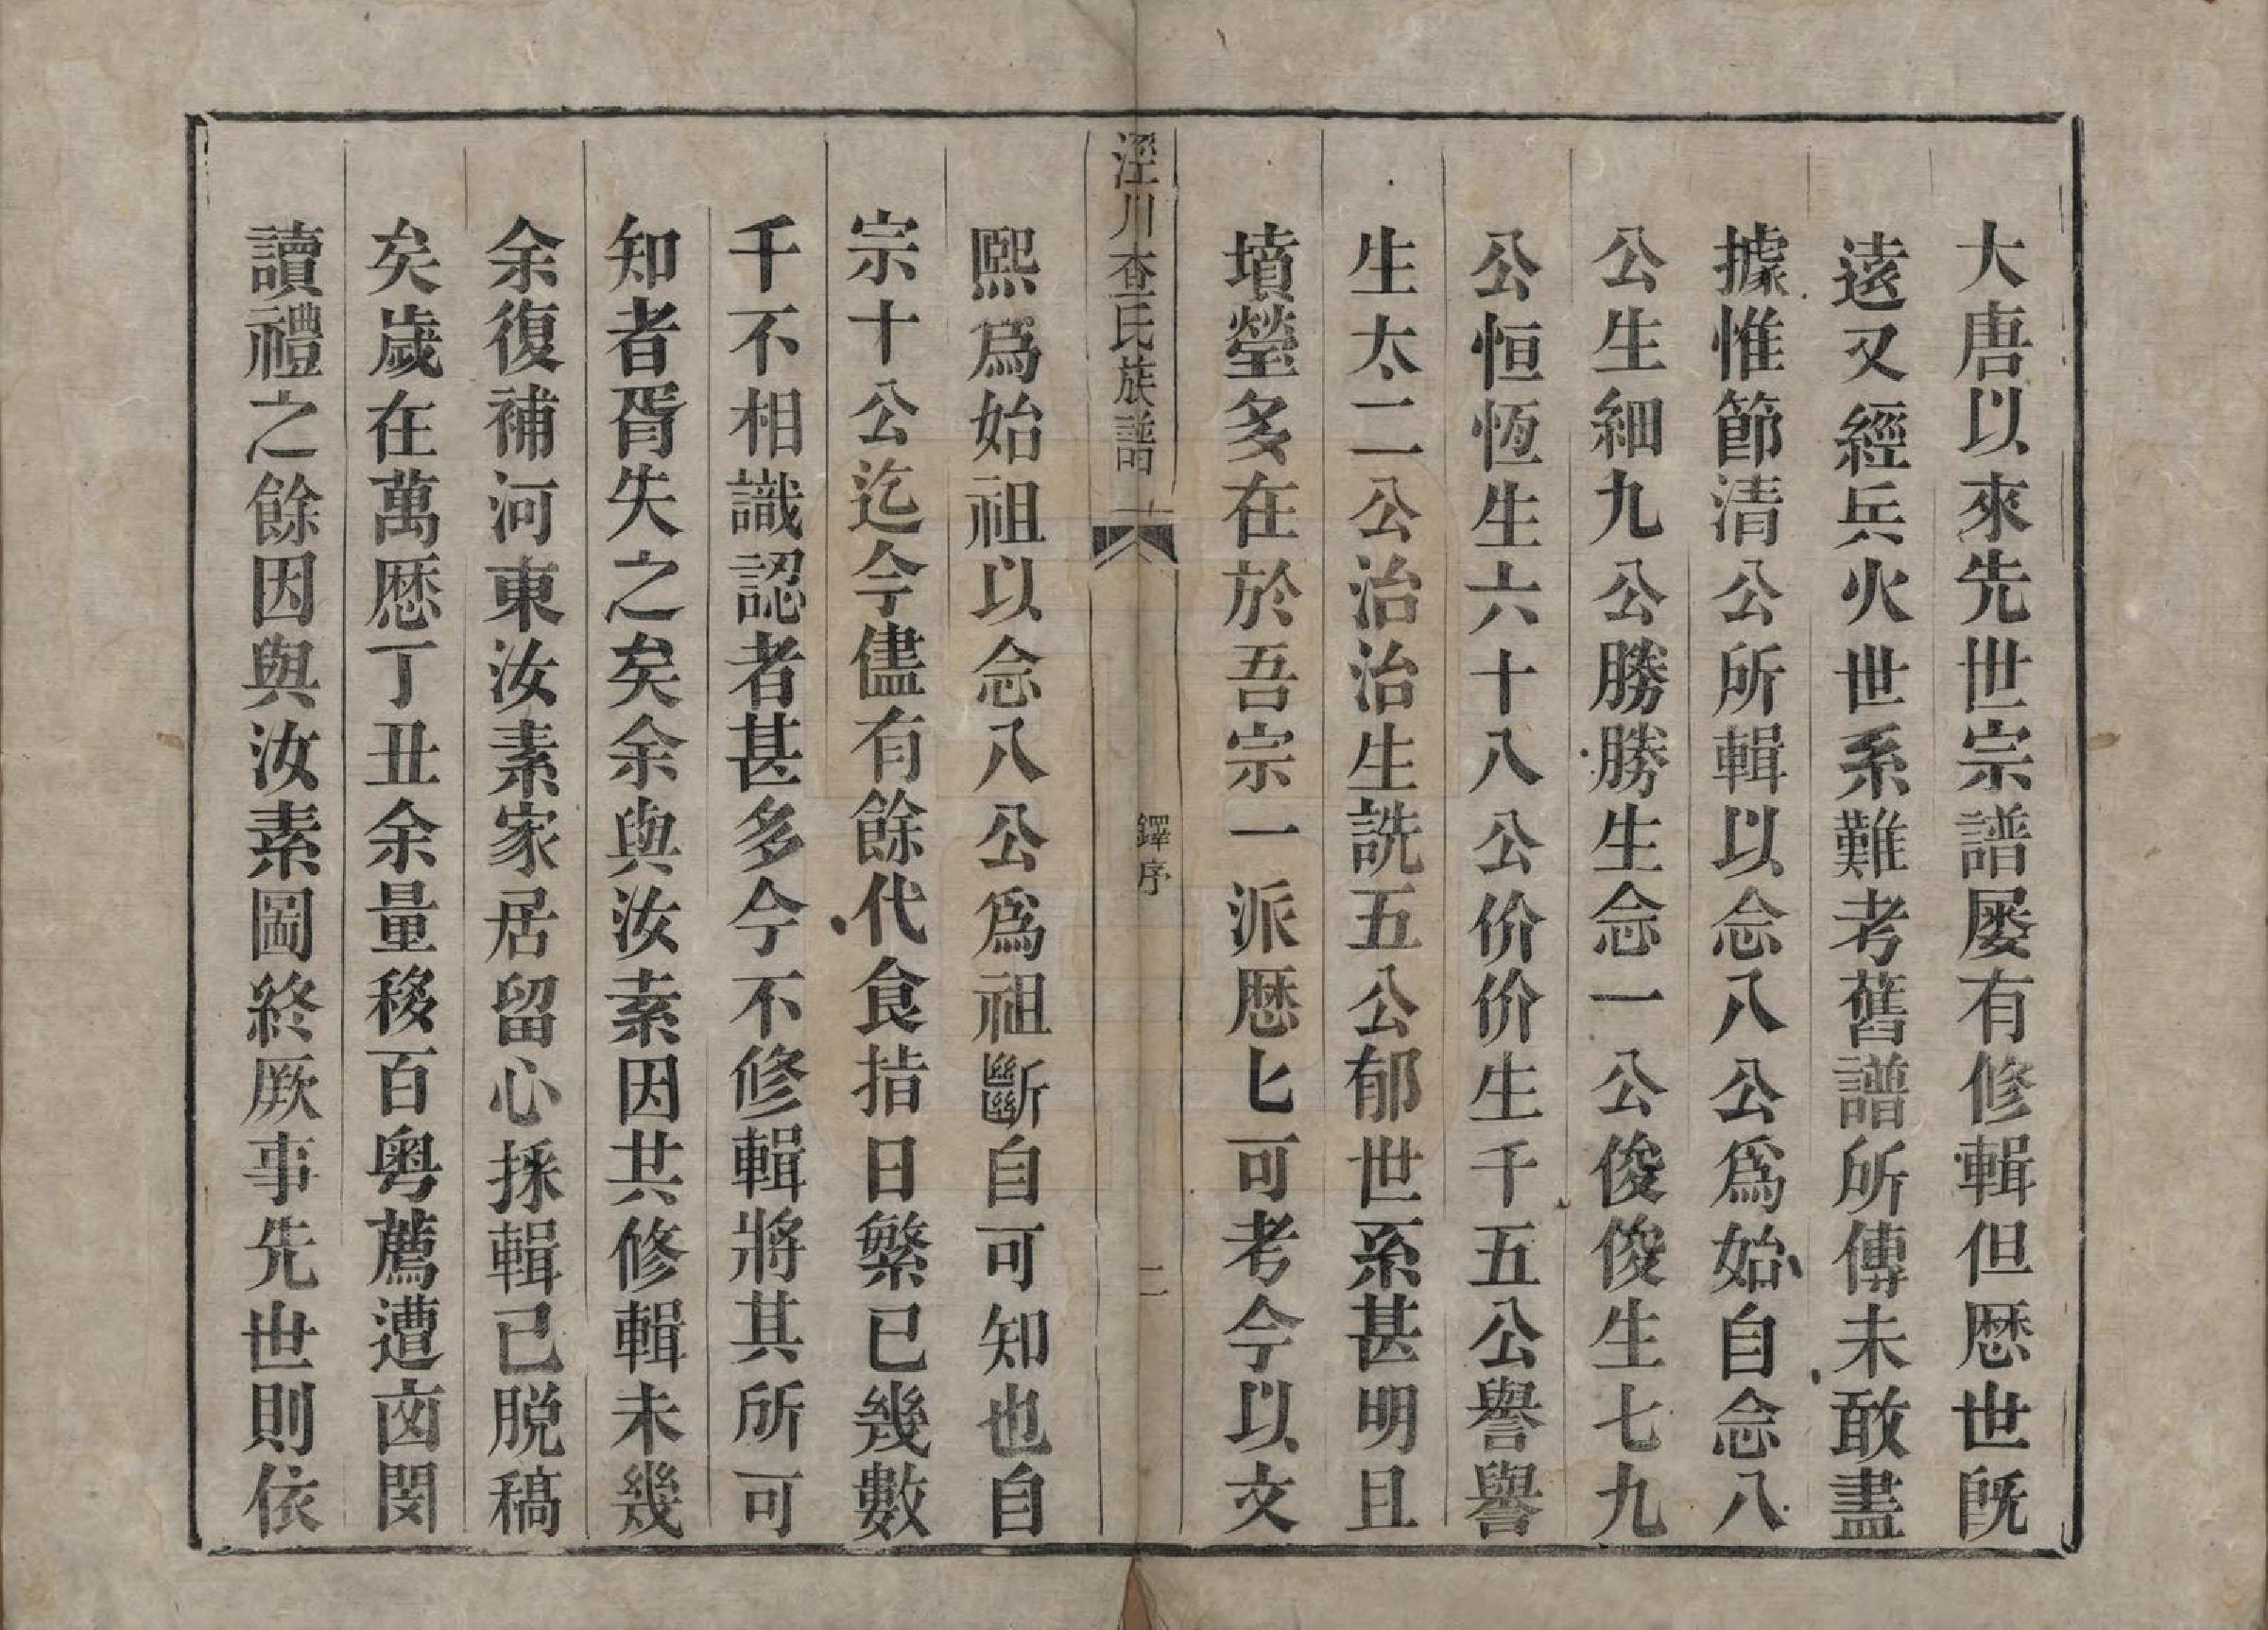 大唐以來先世宗譜屡有修輯但歴世旣
遠又經兵火世系難考舊譜所傳未敢盡
據惟節清公所輯以念八公爲始自念八
公生細九公勝勝生念一公俊俊生七九
公恒恆生六十八公价价生千五公譽譽
生太二公治治生詵五公郁世系甚明且
墳塋多在於吾宗一派歴匕可考今以文
涇川查氏族譜
鐸序
二
熙爲始祖以念八公爲祖斷自可知也自
宗十公迄今儘有餘代食指日繁已幾數
千不相識認者甚多今不修輯將其所可
知者胥失之矣余與汝素因共修輯未幾
余復補河東汝素家居留心採輯已脱稿
矣歲在萬歴丁丑余量移百粤薦遭凶閔
讀禮之餘因與汝素圖終厥事先世則依